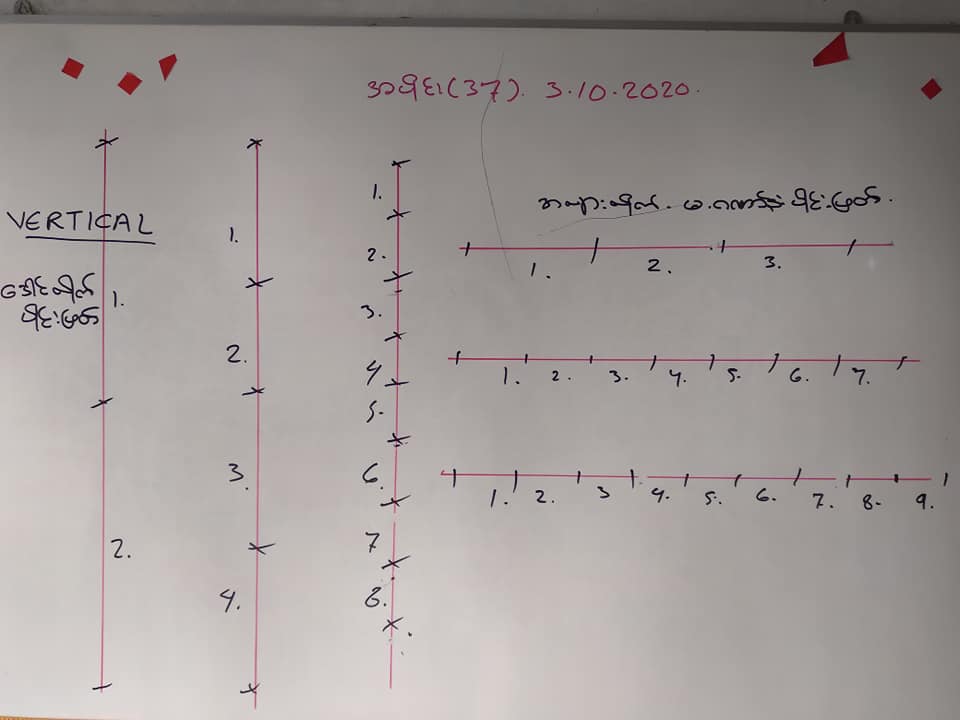 အပိုင်း(37). 3.10.2020.
VERTICAL
ဒေါင်လိုက်
ပိုင်းဖြတ်
1.
2.
1.
2.
3.
4.
1.
2.
3.
4
5.
6.
7
8.
အလျားလိုက်. ပိုင်းဖြတ်.
1. 2. 3.
1. 2. 3. 4. 5. 6. 7.
1. 2. 3 4. 5. 6. 7. 8. 9.